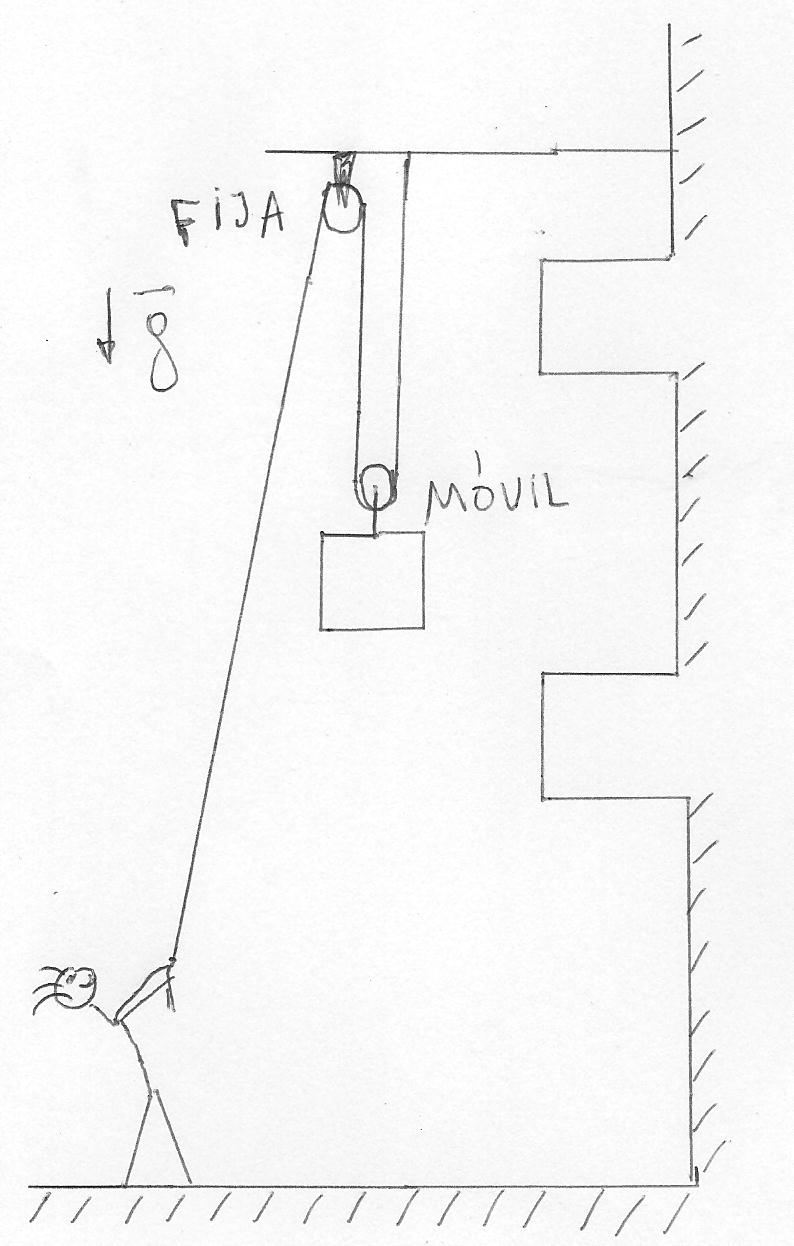 FIJA
g
MÓVIL